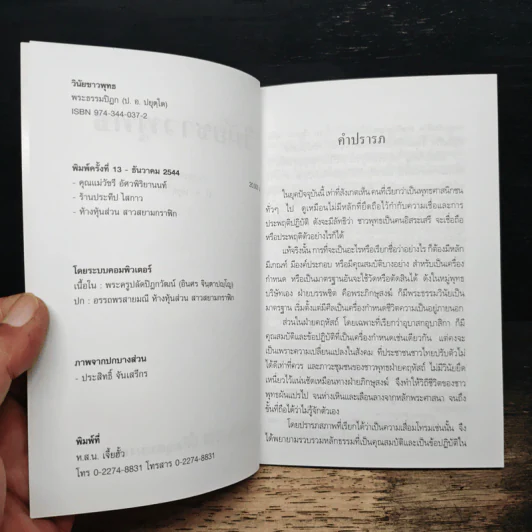 วินัยชาวพุทธ
พระธรรมปิฎก (ป. อ. ปยุตฺโต)
ISBN 974-344-037-2
พิมพ์ครั้งที่ 13 - ธันวาคม 2544
- คุณแม่วัชรี อัศวพิริยานนท์
- ร้านประทีป โสภาว
- ห้างหุ้นส่วน สาวสยามกราฟิก
โดยระบบคอมพิวเตอร์
เนื้อใน : พระครูปลัดปิฎกวัฒน์ (อินศร จินฺตาปญฺโญ)
ปก : อรรถพรสายมณี ห้างหุ้นส่วน สาวสยามกราฟิก
ภาพจากปกบางส่วน
- ประสิทธิ์ จันเสรีกร
พิมพ์ที่
ห.ส.น. เจี้ยฮั้ว
โทร 0-2274-8831 โทรสาร 0-2274-8831
คำปรารภ
ในยุคปัจจุบันนี้ เท่าที่สังเกตเห็น คนที่เรียกว่าเป็นพุทธศาสนิกชน
ทั่วๆ ไป ดูเหมือนไม่มีหลักที่ยึดถือไว้กำกับความเชื่อและการ
ประพฤติปฏิบัติ ดังจะมีลัทธิว่า ชาวพุทธเป็นคนอิสระเสรี จะเชื่อถือ
หรือประพฤติตัวอย่างไรก็ได้
แท้จริงนั้น การที่จะเป็นอะไรหรือเรียกชื่อว่าอย่างไร ก็ต้องมีหลัก
มีเกณฑ์ มีองค์ประกอบ หรือมีคุณสมบัติบางอย่าง สำหรับเป็นเครื่อง
กำหนด หรือเป็นมาตรฐานอันจะใช้วัดหรือตัดสินได้ ดังในหมู่พุทธ
บริษัทเอง ฝ่ายบรรพชิต คือพระภิกษุสงฆ์ ก็มีพระธรรมวินัยเป็น
มาตรฐาน เริ่มตั้งแต่มีศีลเป็นเครื่องกำหนดชีวิตความเป็นอยู่ภายนอก
ส่วนในฝ่ายคฤหัสถ์ โดยเฉพาะที่เรียกว่าอุบาสกอุบาสิกา ก็มี
คุณสมบัติและข้อปฏิบัติที่เป็นเครื่องกำหนดเช่นเดียวกัน แต่คงจะ
เป็นเพราะความเปลี่ยนแปลงในสังคม ที่ประชาชนชาวไทยปรับตัวไม่
ได้ดีเท่าที่ควร และภาวะชุมชนของชาวพุทธฝ่ายคฤหัสถ์ ไม่มีวินัยยึด
เหนี่ยวไว้แน่นชัดเหมือนทางฝ่ายภิกษุสงฆ์ จึงทำให้วิถีชีวิตของชาว
พุทธผันแปรไป จนห่างเหินและเลือนลางจากหลักพระศาสนา จนถึง
ขั้นที่ถือได้ว่าไม่รู้จักตัวเอง
โดยปรารภสภาพที่เรียกได้ว่าเป็นความเสื่อมโทรมเช่นนั้น จึง
ได้พยายามรวบรวมหลักธรรมที่เป็นคุณสมบัติและเป็นข้อปฏิบัติใน